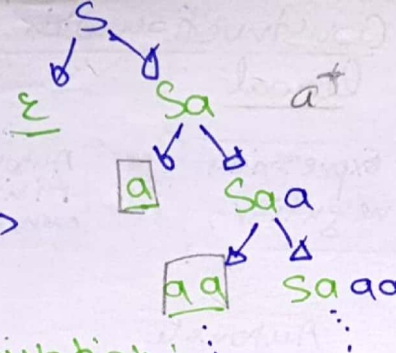 S
ε Sa a+
a Saa
aa Saaa